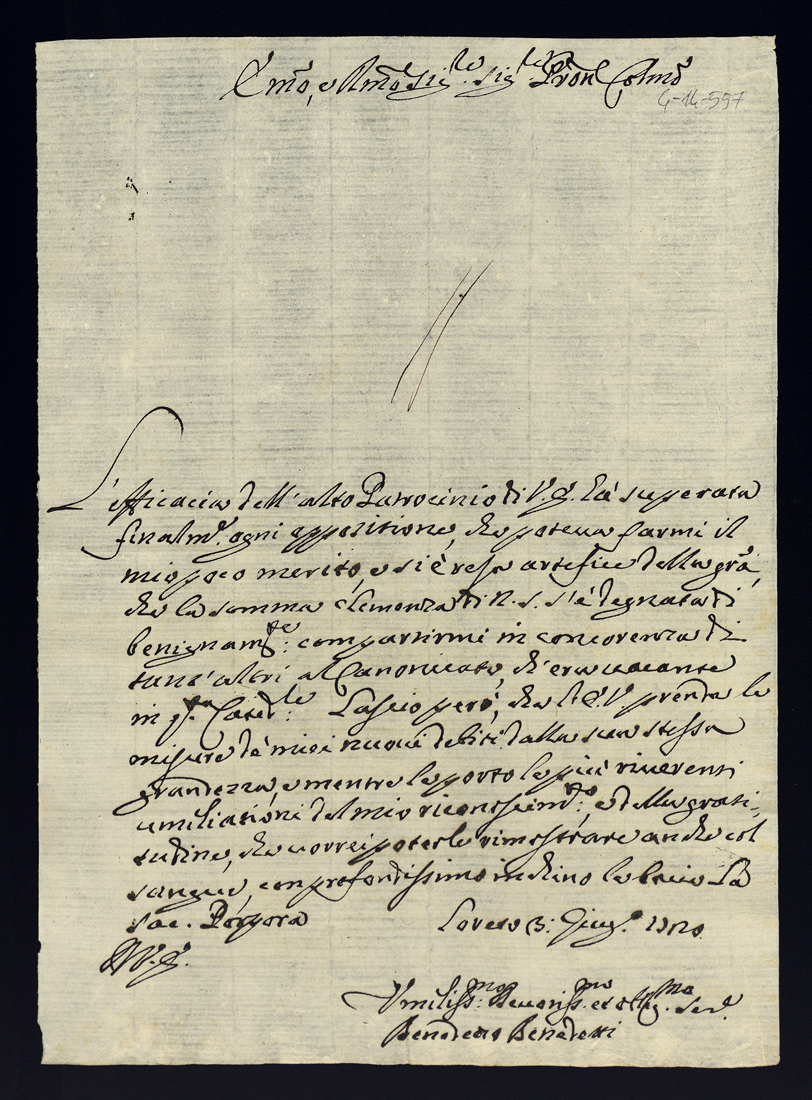 Em̃o, e Rm̃o Sig.re Sig.re Pron̄e Colmõ
4-14-557
L'efficacia dell'alto Patrocinio di V. E. hà superata
finalm.e ogni oppositione, che poteua farmi il
mio poco merito, e si è resa artefice della grã,
che la somma Clemenza di N. S. s'è degnata di
benignam.te compartirmi in concorrenza di
tant'altri al Canonicato, ch'era uacante
in q.ta Cated.le Lascio però, che l'E. V. prenda le
misure de miei nuoui debiti dalla sua stessa
grandezza, e mentre le porto le più riuerenti
umiliationi del mio riconoscim.to, e della grati-
tudine, che uorrei poterle rimostrare anche col
sangue, con profondissimo inchino le bacio la
sac. Porpora
Loreto 3: Giug.o
D. V. E.
Vmiliss.mo Deuotiss.mo et obblig.mo Ser.e
Benedetto Benedetti